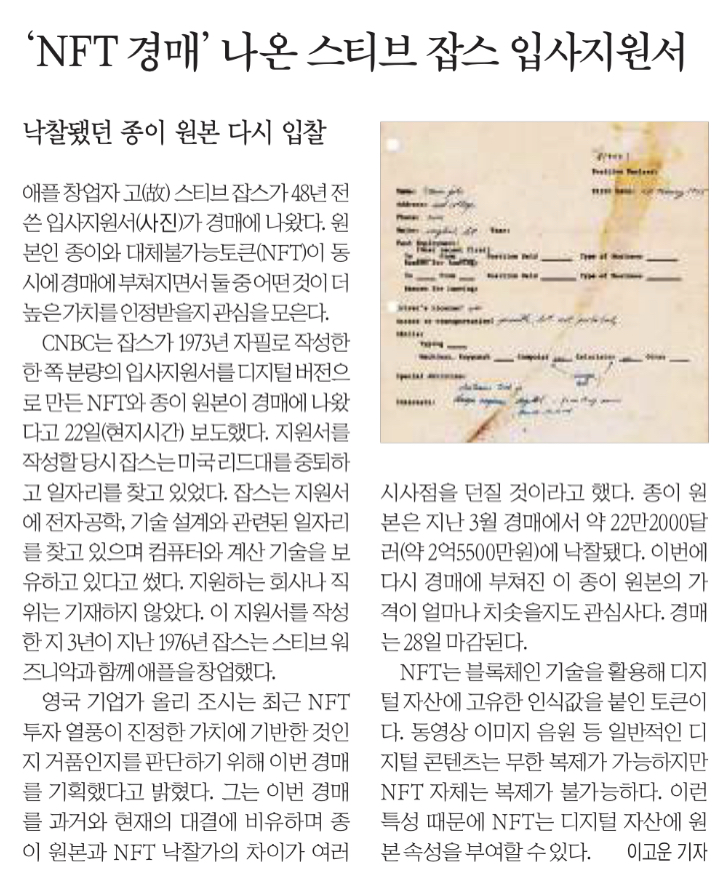 ‘NFT 경매’ 나온 스티브 잡스 입사지원서
낙찰됐던 종이 원본 다시 입찰
애플 창업자 고(故) 스티브 잡스가 48년 전
쓴 입사지원서(사진)가 경매에 나왔다. 원
본인 종이와 대체불가능토큰(NFT)이 동
시에 경매에 부쳐지면서 둘 중 어떤 것이 더
높은 가치를 인정받을지 관심을 모은다.
CNBC는 잡스가 1973년 자필로 작성한
한 쪽 분량의 입사지원서를 디지털 버전으
로 만든 NFT와 종이 원본이 경매에 나왔
다고 22일(현지시간) 보도했다. 지원서를
작성할 당시 잡스는 미국 리드대를 중퇴하
고 일자리를 찾고 있었다. 잡스는 지원서
에 전자공학, 기술 설계와 관련된 일자리
를 찾고 있으며 컴퓨터와 계산 기술을 보
유하고 있다고 썼다. 지원하는 회사나 직
위는 기재하지 않았다. 이 지원서를 작성
한 지 3년이 지난 1976년 잡스는 스티브 워
즈니악과 함께 애플을 창업했다.
영국 기업가 올리 조시는 최근 NFT
투자 열풍이 진정한 가치에 기반한 것인
지 거품인지를 판단하기 위해 이번 경매
를 기획했다고 밝혔다. 그는 이번 경매
를 과거와 현재의 대결에 비유하며 종
이 원본과 NFT 낙찰가의 차이가 여러
Position Desired:
Name:
Address: reed college
Phone: none
Major: Year:
Past Employment:
(Most recent first)
To From Position Held Type of Business
Reason for Leaving:
To From Position Held Type of Business
Reason for Leaving:
Driver's License:
Access to transportation? possible, but not probable
Skills:
Typing
Machines, Keypunch Computer Calculator Other
Special Abilities:
Interests:
시사점을 던질 것이라고 했다. 종이 원
본은 지난 3월 경매에서 약 22만2000달
러(약 2억5500만원)에 낙찰됐다. 이번에
다시 경매에 부쳐진 이 종이 원본의 가
격이 얼마나 치솟을지도 관심사다. 경매
는 28일 마감된다.
NFT는 블록체인 기술을 활용해 디지
털 자산에 고유한 인식값을 붙인 토큰이
다. 동영상 이미지 음원 등 일반적인 디
지털 콘텐츠는 무한 복제가 가능하지만
NFT 자체는 복제가 불가능하다. 이런
특성 때문에 NFT는 디지털 자산에 원
본 속성을 부여할 수 있다. 이고운 기자